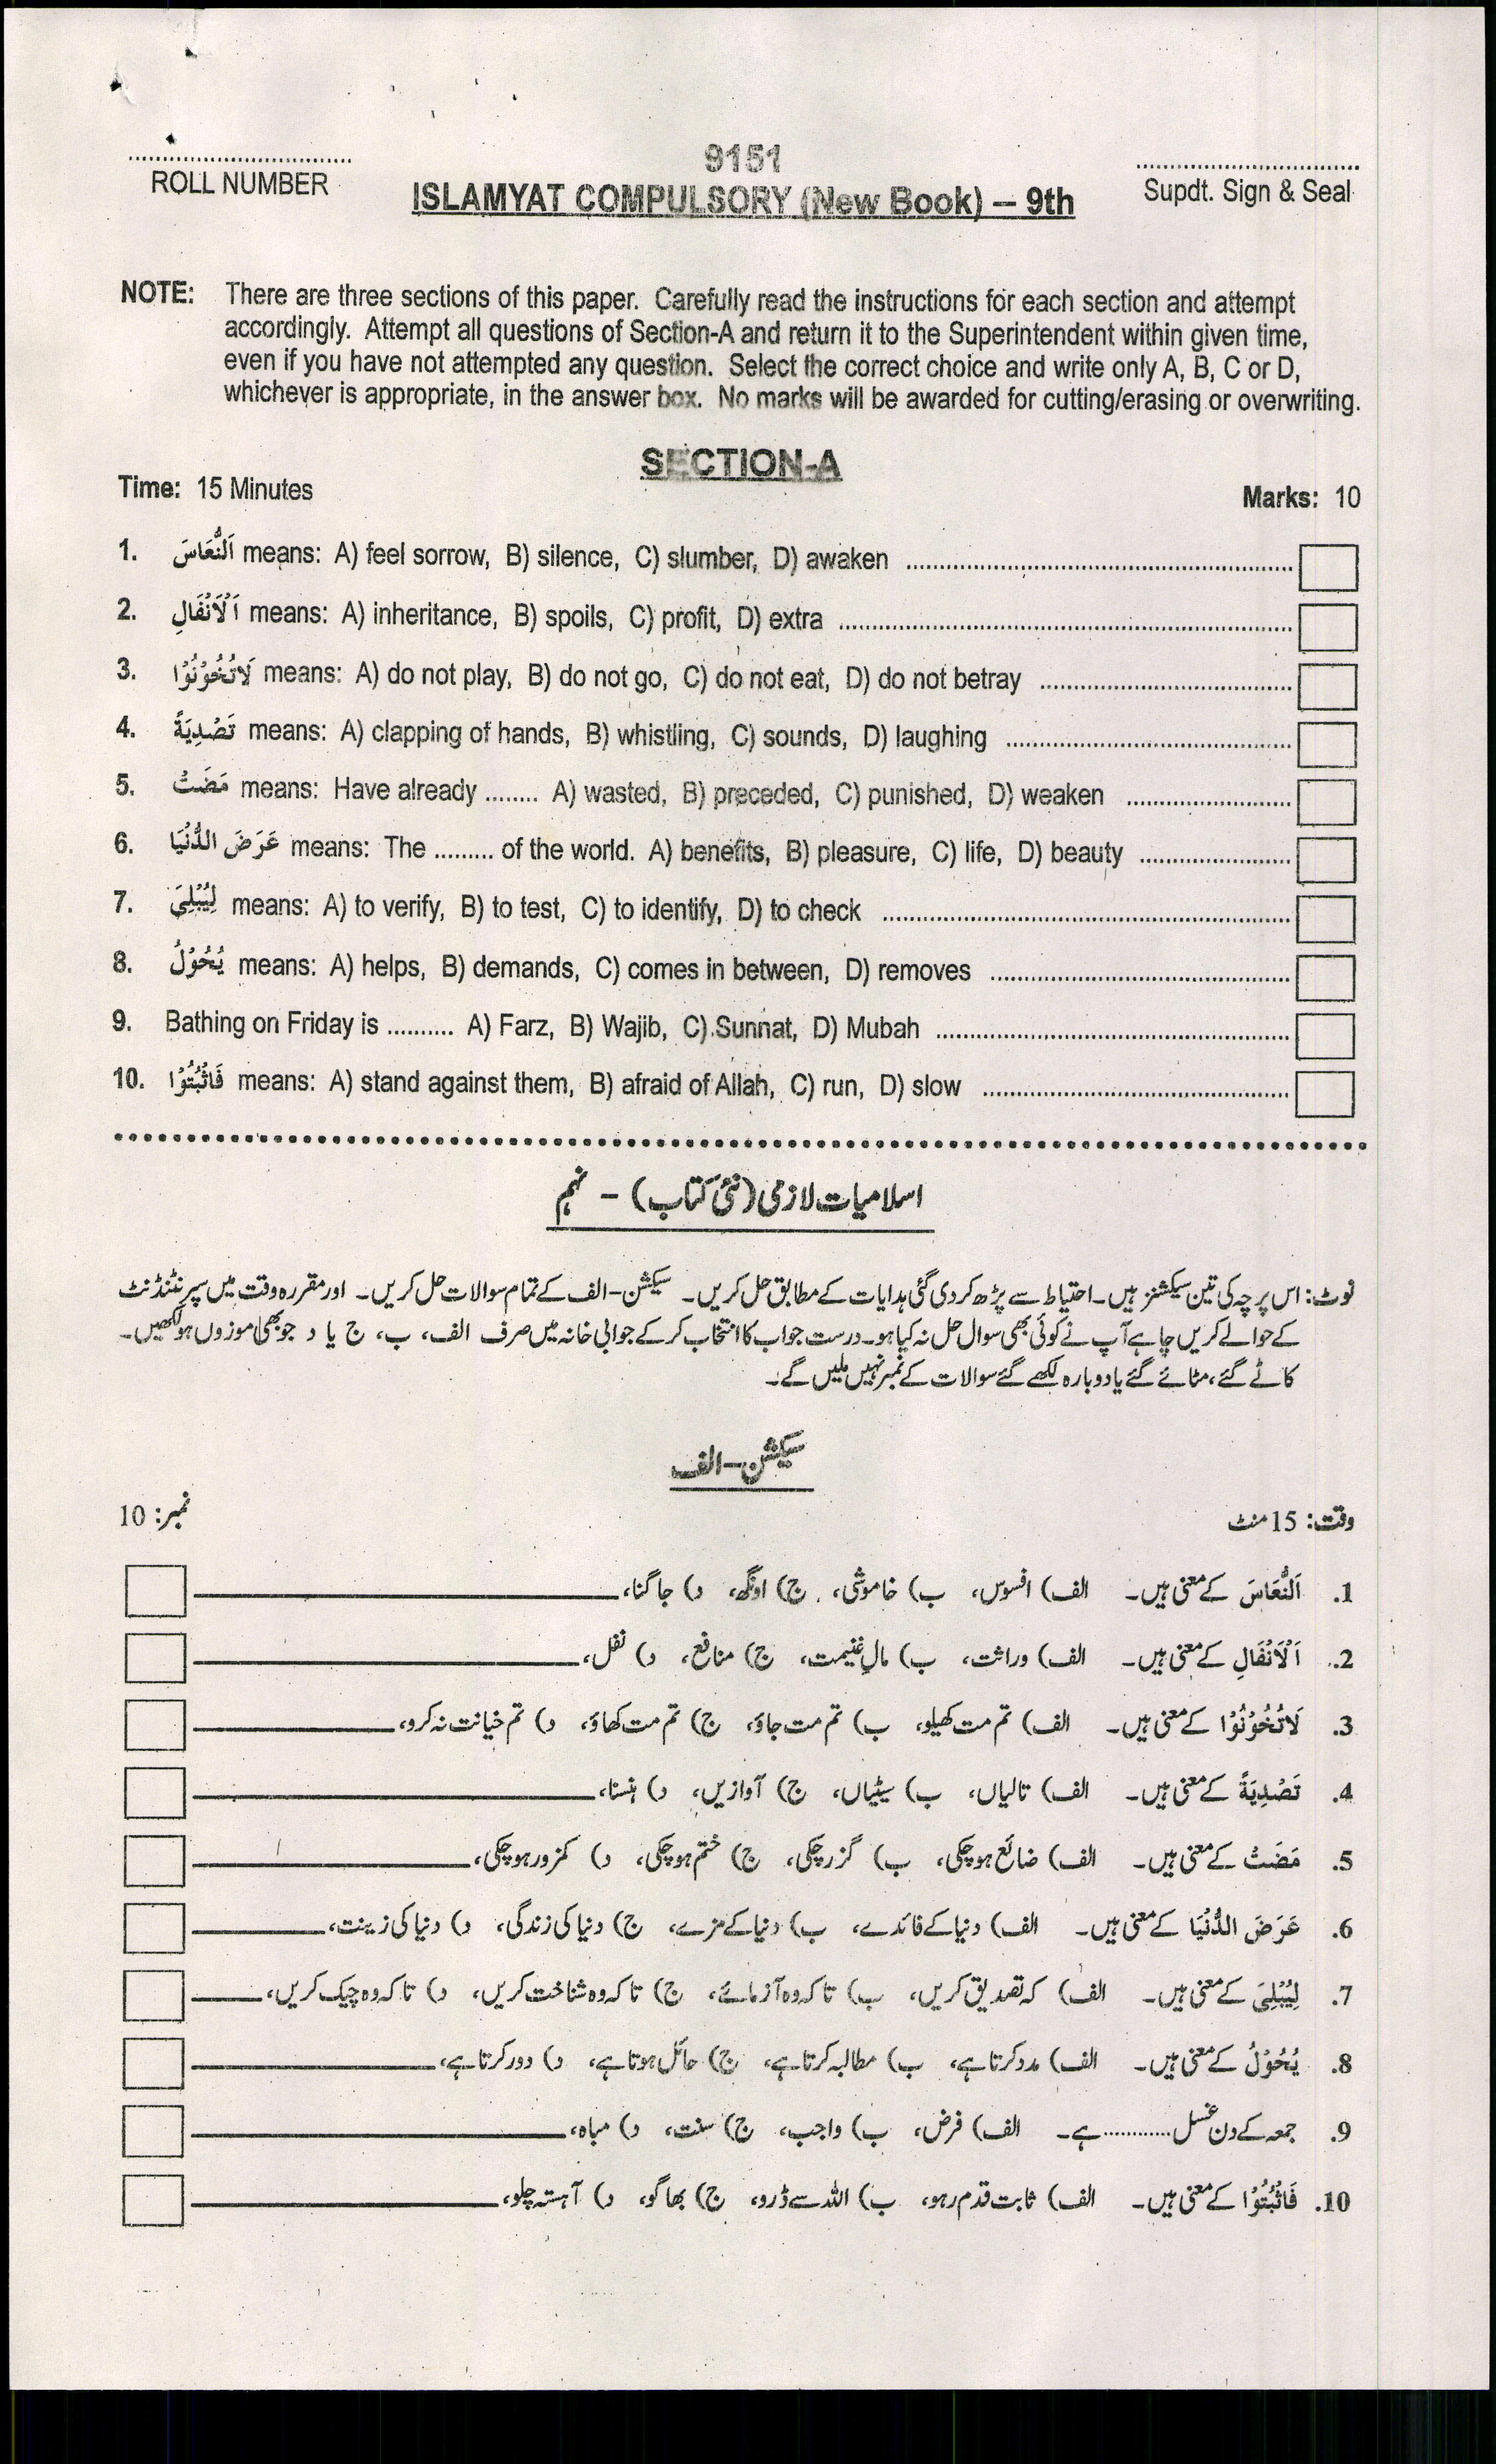 9151
ROLL NUMBER
ISLAMYAT COMPULSORY (New Book) – 9th
Supdt. Sign & Seal
NOTE: There are three sections of this paper. Carefully read the instructions for each section and attempt
accordingly. Attempt all questions of Section-A and return it to the Superintendent within given time,
even if you have not attempted any question. Select the correct choice and write only A, B, C or D,
whichever is appropriate, in the answer box. No marks will be awarded for cutting/erasing or overwriting.
SECTION-A
Time: 15 Minutes Marks: 10
1. اَلنُّعَاسَ means: A) feel sorrow, B) silence, C) slumber, D) awaken
2. اَلْاَنْفَالِ means: A) inheritance, B) spoils, C) profit, D) extra
3. لَاتُخُوْنُوْا means: A) do not play, B) do not go, C) do not eat, D) do not betray
4. تَصْدِيَةً means: A) clapping of hands, B) whistling, C) sounds, D) laughing
5. مَضَتْ means: Have already ........ A) wasted, B) preceded, C) punished, D) weaken
6. عَرَضَ الدُّنْيَا means: The ......... of the world. A) benefits, B) pleasure, C) life, D) beauty
7. لِيُبْلِيَ means: A) to verify, B) to test, C) to identify, D) to check
8. يُحُوْلُ means: A) helps, B) demands, C) comes in between, D) removes
9. Bathing on Friday is .......... A) Farz, B) Wajib, C) Sunnat, D) Mubah
10. فَاثْبُتُوْا means: A) stand against them, B) afraid of Allah, C) run, D) slow
اسلامیات لازمی (نئی کتاب) - نہم
نوٹ: اس پرچہ کی تین سیکشنز ہیں۔ احتیاط سے پڑھ کر دی گئی ہدایات کے مطابق حل کریں۔ سیکشن-الف کے تمام سوالات حل کریں۔ اور مقررہ وقت میں سپرنٹنڈنٹ
کے حوالے کریں چاہے آپ نے کوئی بھی سوال حل نہ کیا ہو۔ درست جواب کا انتخاب کر کے جوابی خانہ میں صرف الف، ب، ج یا د جو بھی موزوں ہو لکھیں۔
کاٹے گئے، مٹائے گئے یا دوبارہ لکھے گئے سوالات کے نمبر نہیں ملیں گے۔
سیکشن-الف
وقت: 15 منٹ نمبر: 10
1. اَلنُّعَاسَ کے معنی ہیں۔ الف) افسوس، ب) خاموشی، ج) اونگھ، د) جاگنا،
2. اَلْاَنْفَالِ کے معنی ہیں۔ الف) وراثت، ب) مالِ غنیمت، ج) منافع، د) نفل،
3. لَاتُخُوْنُوْا کے معنی ہیں۔ الف) تم مت کھیلو، ب) تم مت جاؤ، ج) تم مت کھاؤ، د) تم خیانت نہ کرو،
4. تَصْدِيَةً کے معنی ہیں۔ الف) تالیاں، ب) سیٹیاں، ج) آوازیں، د) ہنسنا،
5. مَضَتْ کے معنی ہیں۔ الف) ضائع ہو چکی، ب) گزر چکی، ج) ختم ہو چکی، د) کمزور ہو چکی،
6. عَرَضَ الدُّنْيَا کے معنی ہیں۔ الف) دنیا کے فائدے، ب) دنیا کے مزے، ج) دنیا کی زندگی، د) دنیا کی زینت،
7. لِيُبْلِيَ کے معنی ہیں۔ الف) کہ تصدیق کریں، ب) تاکہ وہ آزمائے، ج) تاکہ وہ شناخت کریں، د) تاکہ وہ چیک کریں،
8. يُحُوْلُ کے معنی ہیں۔ الف) مدد کرتا ہے، ب) مطالبہ کرتا ہے، ج) حائل ہوتا ہے، د) دور کرتا ہے،
9. جمعہ کے دن غسل ............ ہے۔ الف) فرض، ب) واجب، ج) سنت، د) مباہ،
10. فَاثْبُتُوْا کے معنی ہیں۔ الف) ثابت قدم رہو، ب) اللہ سے ڈرو، ج) بھاگو، د) آہستہ چلو،